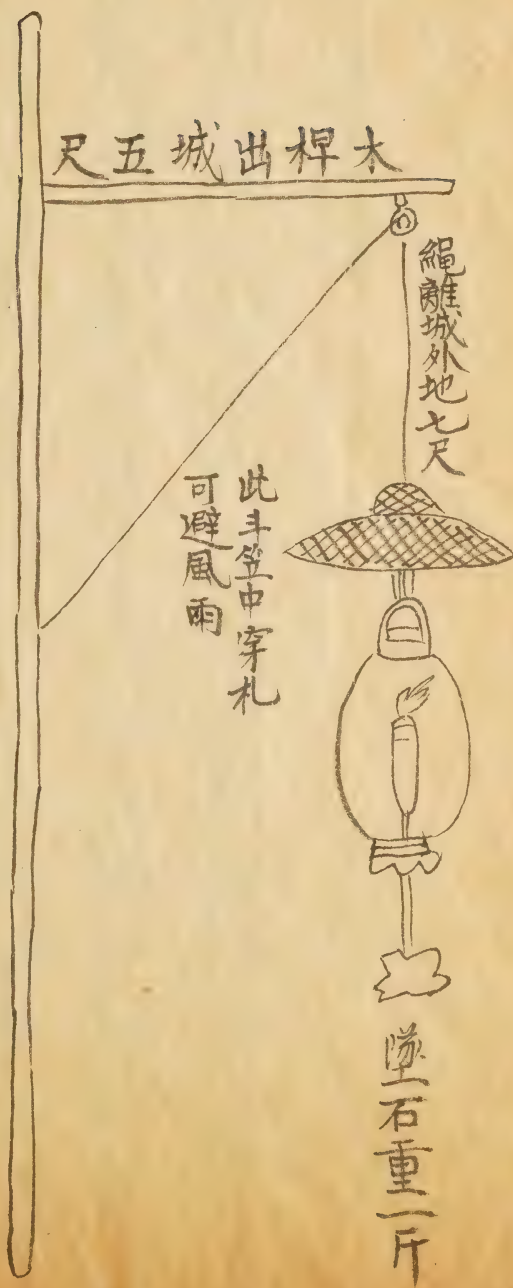 木桿出城五尺
繩離城外地七尺
此斗笠中穿札
可避風雨
墜石重一斤